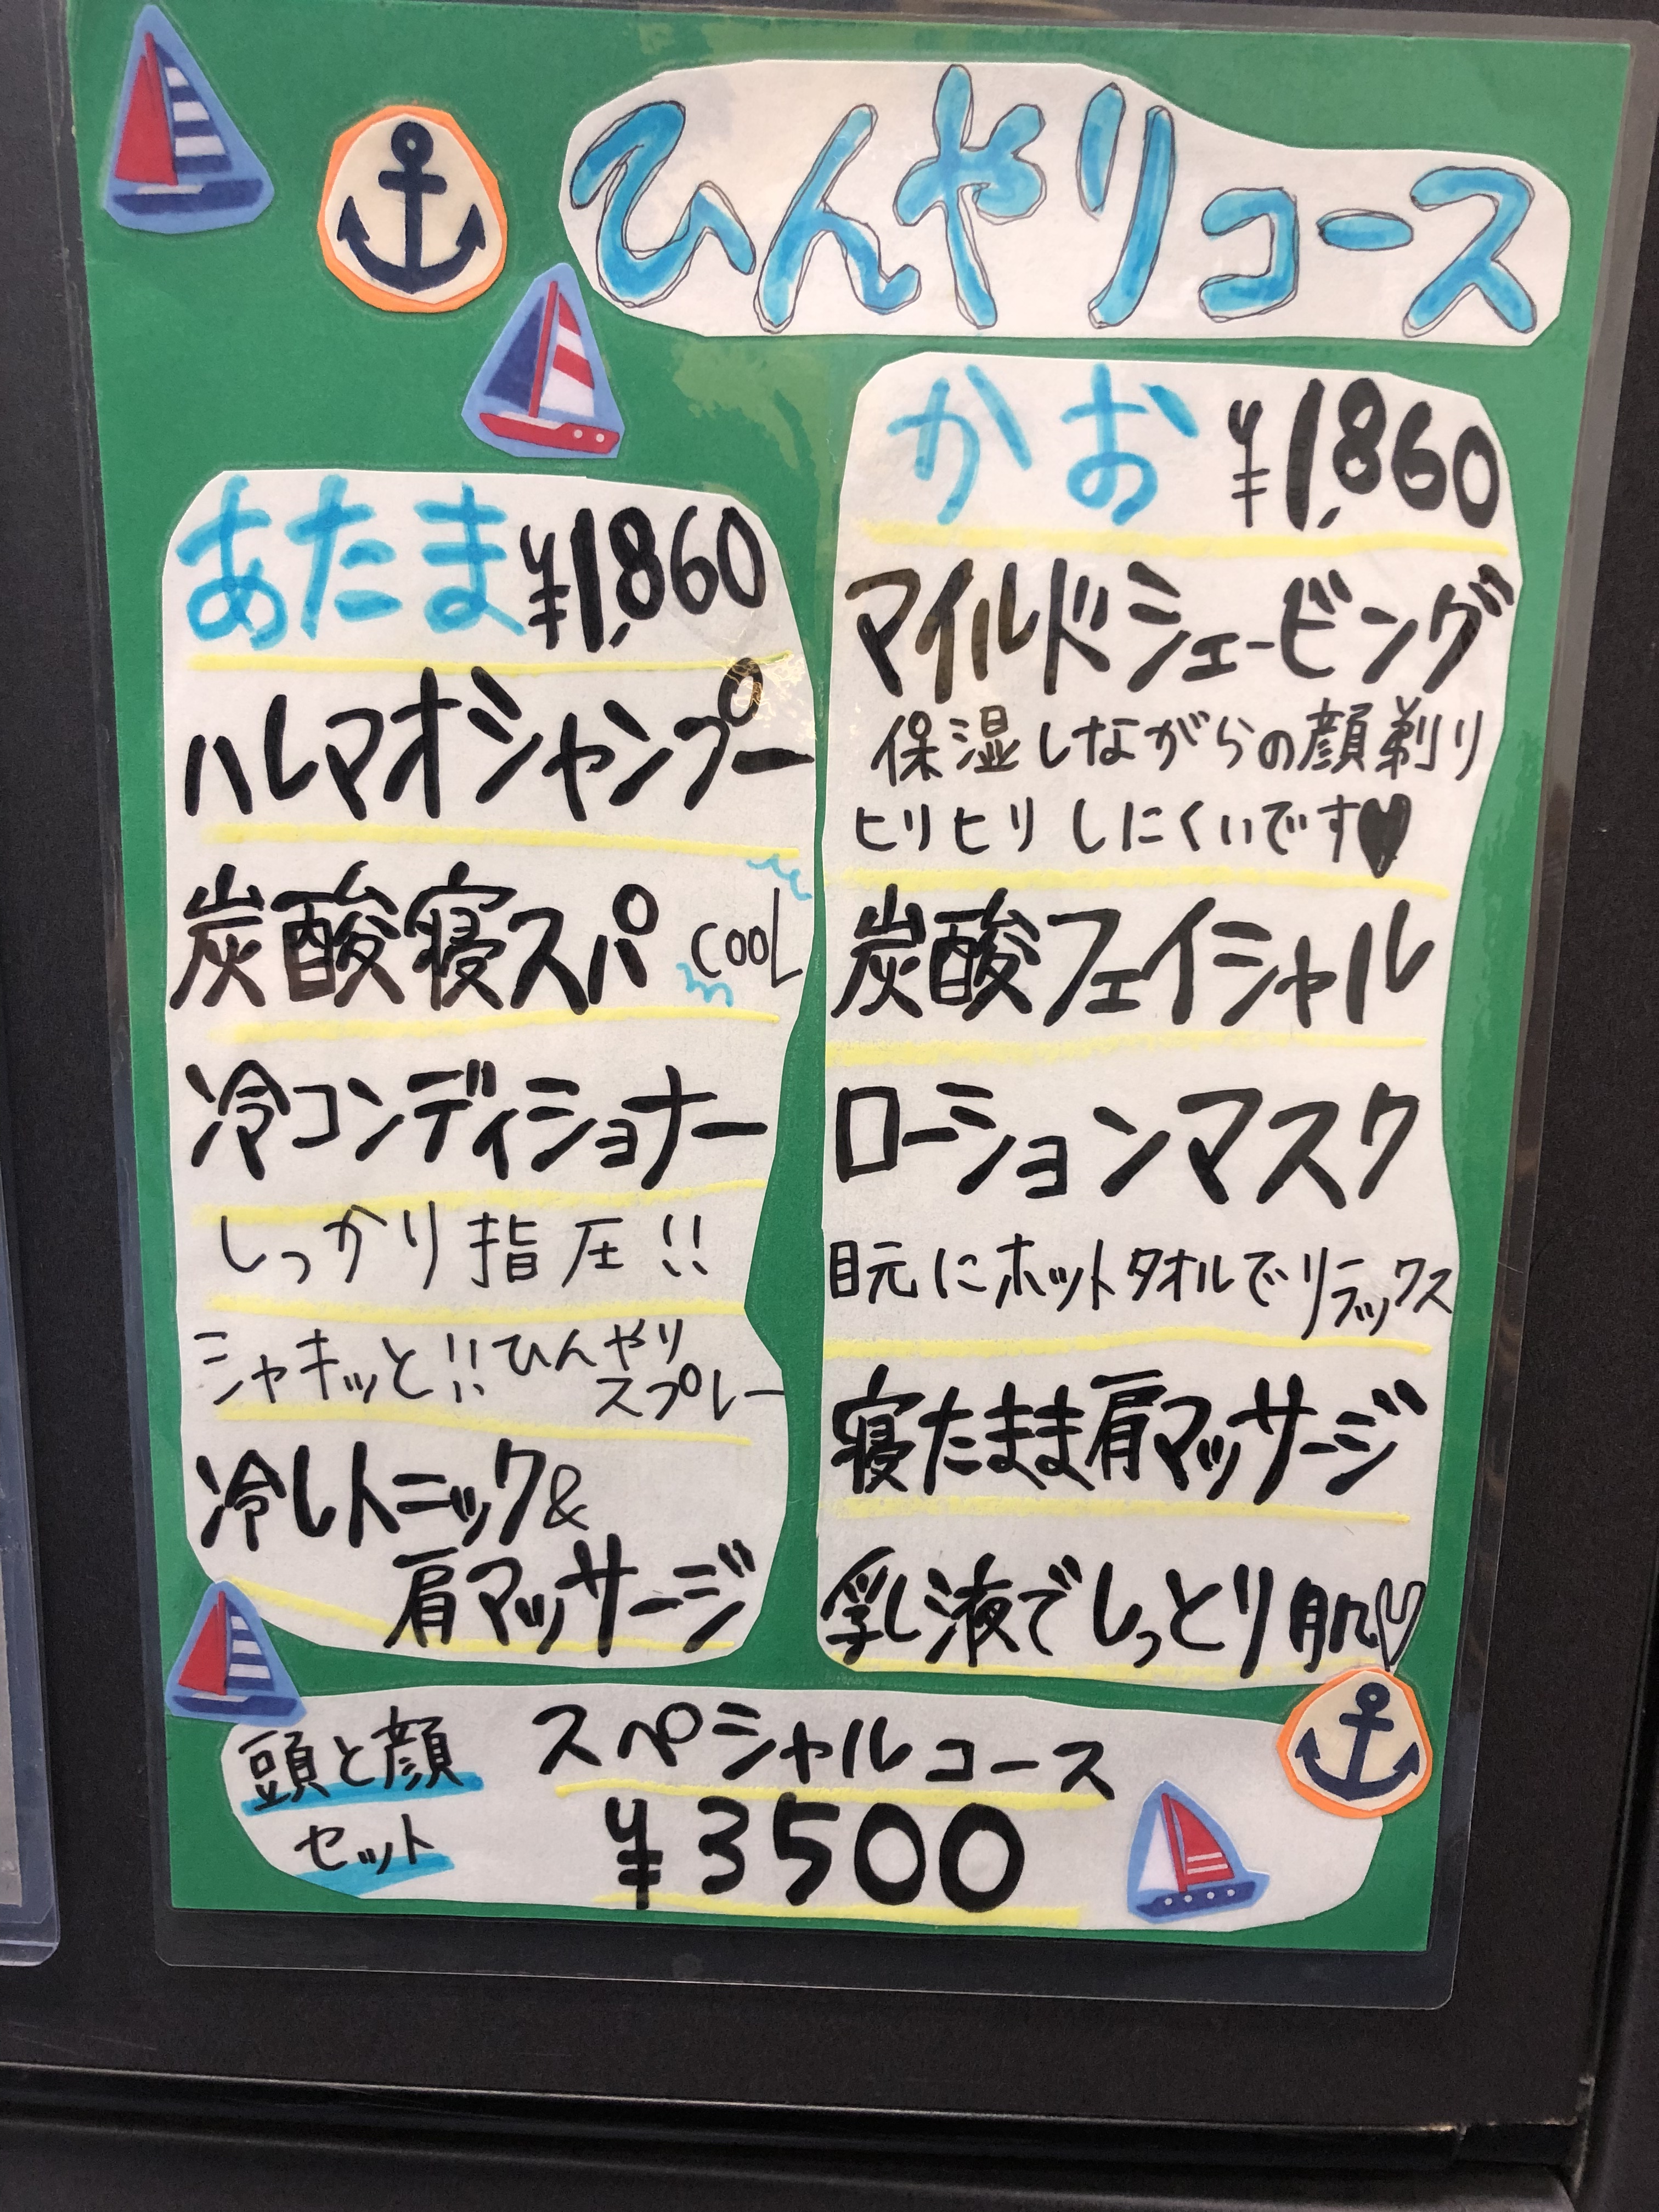 ひんやりコース
あたま ¥1,860
ハレマオシャンプー
炭酸寝スパ COOL
冷コンディショナー
しっかり指圧!!
シャキッと!!ひんやり
スプレー
冷しトニック&
肩マッサージ
かお ¥1,860
マイルドシェービング
保湿しながらの顔剃り
ヒリヒリしにくいです♥
炭酸フェイシャル
ローションマスク
目元にホットタオルでリラックス
寝たまま肩マッサージ
乳液でしっとり肌♡
頭と顔
セット
スペシャルコース
¥3500